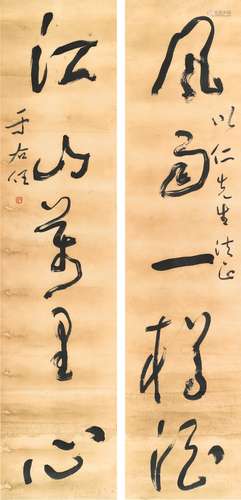 風雨一樽酒
以仁先生法正
江山萬里心
于右任